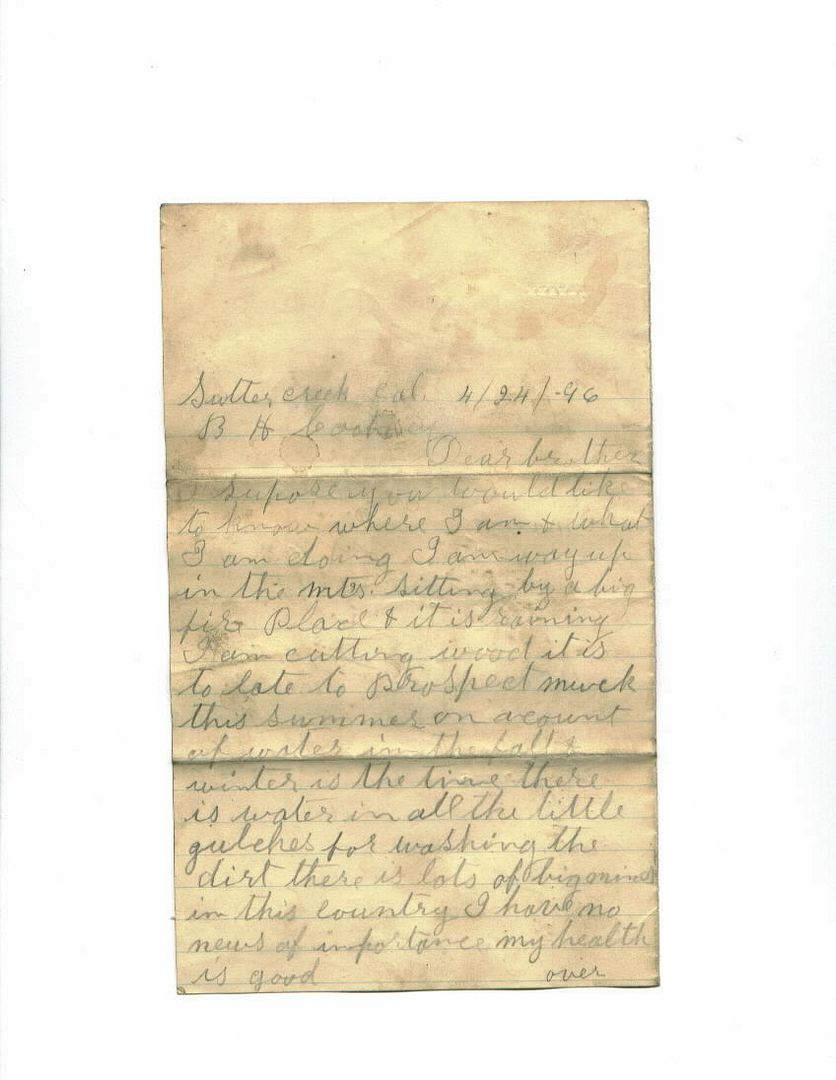 Sutter creek Cal. 4/24/-96
B H
Dear brother
I supose you would like
to know where I am & what
I am doing I am way up
in the mts. sitting by a big
fire Place & it is raining
I am cutting wood it is
to late to Prospect muck
this summer on acount
of water in the fall &
winter is the time there
is water in all the little
gulches for washing the
dirt there is lots of big mines
in this country I have no
news of importance my health
is good over